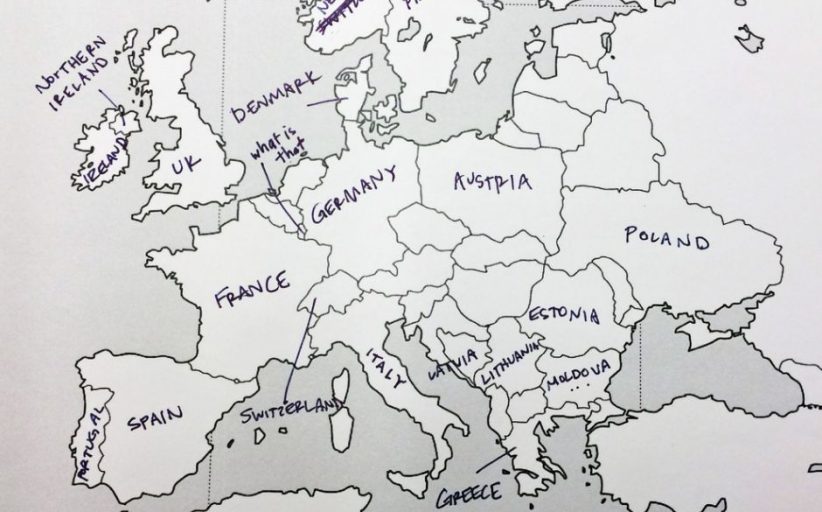 NORTHERN
IRELAND
IRELAND
UK
DENMARK
what is
that
GERMANY
AUSTRIA
POLAND
FRANCE
SWITZERLAND
ITALY
ESTONIA
LATVIA
LITHUANIA
MOLDOVA
SPAIN
PORTUGAL
GREECE